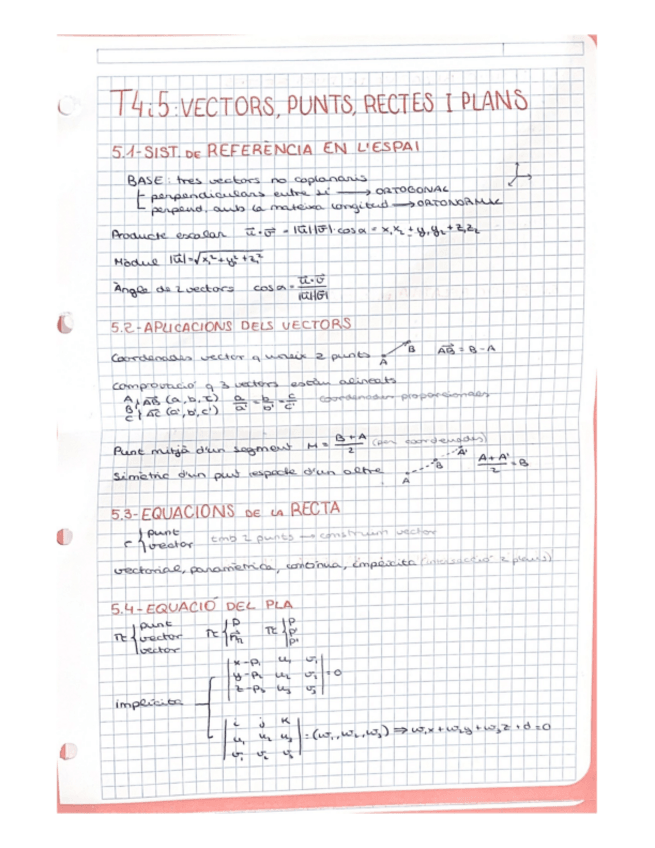 T4i5: VECTORS, PUNTS, RECTES I PLANS
5.1-SIST. DE REFERÈNCIA EN L'ESPAI
BASE: tres vectors no coplanaris
perpendiculars entre si → ORTOGONAL
perpend, amb la mateixa longitud → ORTONORMAL
Producte escalar u⃗·v⃗ = |u⃗||v⃗|·cosα = x₁x₂+y₁y₂+z₁z₂
Mòdul |u⃗|=√x₁²+y₁²+z₁²
Angle de 2 vectors cosα = u⃗·v⃗ / |u⃗||v⃗|
5.2-APLICACIONS DELS VECTORS
Coordenades vector q uneix 2 punts A B AB⃗ = B-A
comprovació q 3 vectors estan alineats
A AB⃗ (a,b,c) a/a' = b/b' = c/c' coordenades proporcionals
B
C AC⃗ (a',b',c')
Punt mitjà d'un segment M = B+A / 2 (per coordenades)
Simètric d'un punt respecte d'un altre A B A' A+A' / 2 = B
5.3-EQUACIONS DE LA RECTA
r { punt
vector tmb 2 punts → construim vector
vectorial, paramètrica, contínua, implícita (intersecció 2 plans)
5.4-EQUACIÓ DEL PLA
π { punt vector vector π { P n⃗ π { P P' P''
implícita
| x-p₁ u₁ v₁ |
| y-p₂ u₂ v₂ | = 0
| z-p₃ u₃ v₃ |
| i j k |
| u₁ u₂ u₃ | = (w₁,w₂,w₃) ⇒ w₁x+w₂y+w₃z+d=0
| v₁ v₂ v₃ |